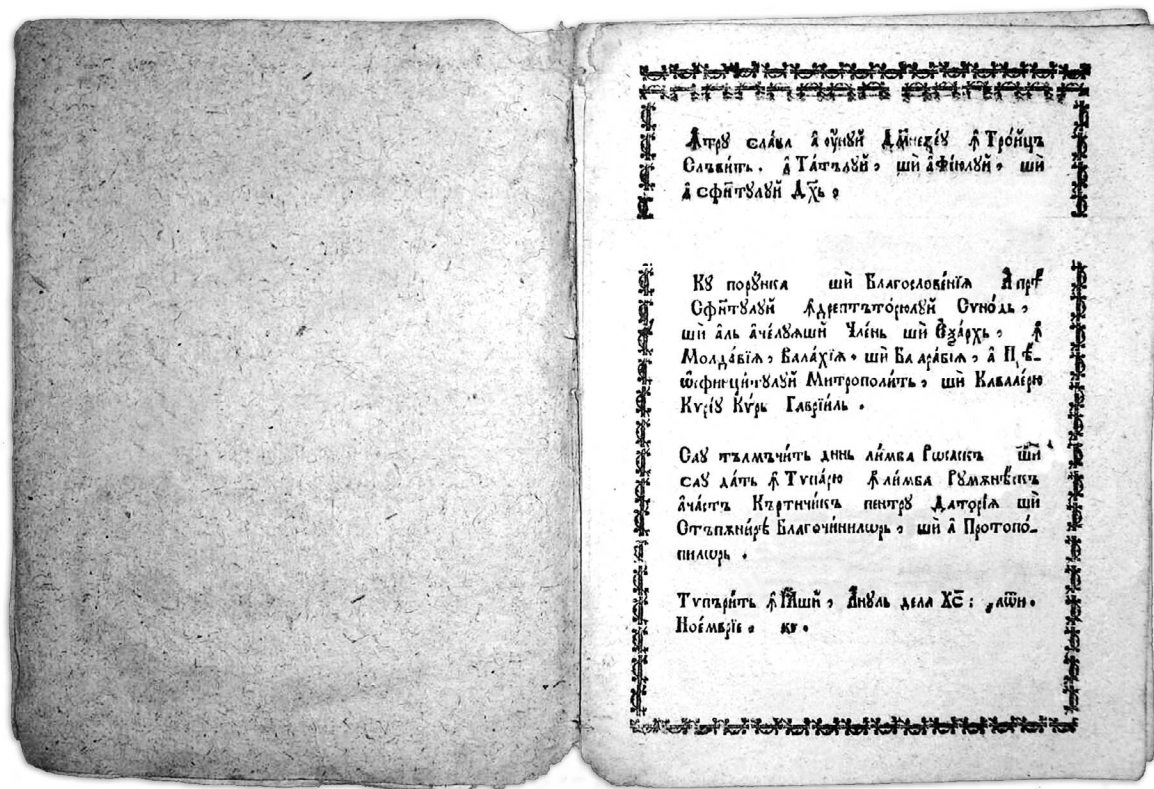 Ꙟтру слава а оу́нуй Дм҃незеу ꙟ Тро́ицъ
Слъви́тъ. а҆ Та́тълꙋй, шѝ а҆ Фі́юлꙋй, шѝ
а҆ сфи҃тꙋлꙋй Дх҃ь,
Кꙋ порꙋ́нка шѝ Благослове́нїѧ
Сфи҃тꙋлꙋй ꙟдрептъто́рюлꙋй Сѵно́дь,
шѝ а҆ль аче́лꙋѧшй Чле́нь шѝ Е҆ѯа́рхь, ꙟ
Молда́вїѧ, Вала́хїѧ, шѝ Ба арабїѧ, а҆
Митрополи́ть, шѝ Кавале́рю
Кѵ́рїꙋ Кѵ́рь Гаврїи́ль.
Саꙋ тълмъчи́ть динь ли́мба Рꙋсаскъ шѝ
саꙋ да́ть ꙟ Тѵпа́рю ꙟ ли́мба Рꙋмѫнѣ́скъ
а҆ча́стъ Къртичи́къ пентрꙋ Датори́ѧ шѝ
Стъпѫни́рѣ Благочи́ннилѡрь, шѝ а҆ Протопо́-
пилѡрь.
Тѵпъри́ть ꙟ Ꙗ҆́шй, А҆́нꙋль дела Хс҃: ҂аѿи.
Ное́мврїе. кг.